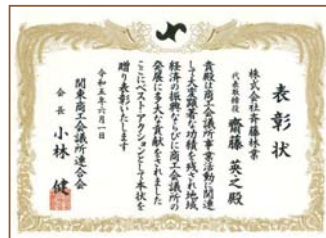 表彰状
株式会社斉藤林業
代表取締役 齋藤英之殿
貴殿は商工会議所事業活動に関連
して大変顕著な功績を残され地域
経済の振興ならびに商工会議所の
発展に多大な貢献をされました
ここにベストアクションとして本状を
贈り表彰いたします
令和五年六月一日
関東商工会議所連合会
会長 小林健